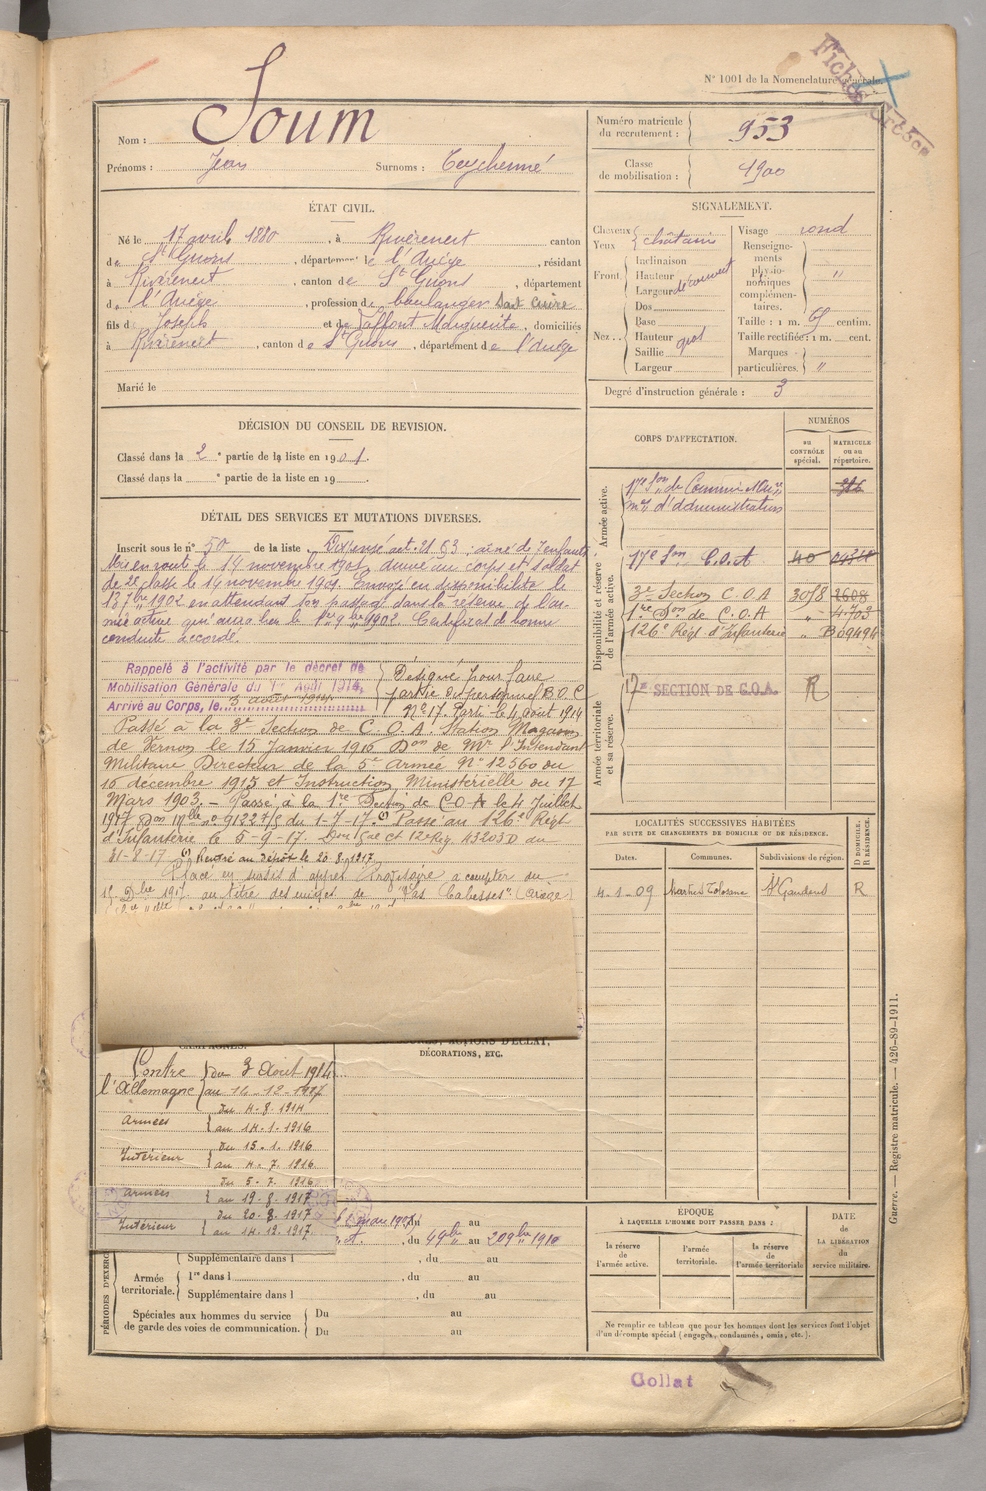 N° 1001 de la Nomenclature générale.
Nom : Soum
Prénoms : Jean Surnoms : Teychenné
Numéro matricule du recrutement : 953
Classe de mobilisation : 1900
ÉTAT CIVIL.
Né le 17 avril 1880, à Rivèrenert canton
de St Girons, département de l'Ariège, résidant
à Rivèrenert, canton de St Girons, département
de l'Ariège, profession de boulanger Sait cuire
fils de Joseph et de Laffont Marguerite, domiciliés
à Rivèrenert, canton de St Girons, département de l'Ariège
Marié le
SIGNALEMENT.
Cheveux
Yeux châtains
Front Inclinaison
Hauteur
Largeur découvert
Nez Dos
Base
Hauteur gros
Saillie
Largeur
Visage rond
Renseignements physionomiques complémentaires. "
Taille : 1 m. 69 centim.
Taille rectifiée : 1 m. cent.
Marques particulières. "
Degré d'instruction générale : 3
DÉCISION DU CONSEIL DE REVISION.
Classé dans la 2e partie de la liste en 1901.
Classé dans la e partie de la liste en 19
DÉTAIL DES SERVICES ET MUTATIONS DIVERSES.
Inscrit sous le n° 50 de la liste Dispensé art. 21 § 3 : aîné de 7 enfants
Mis en route le 14 novembre 1901, arrivé au corps et soldat
de 2e classe le 14 novembre 1901. Envoyé en disponibilité le
13 7bre 1902 en attendant son passage dans la réserve de l'ar-
mée active qui aura lieu le 1er 9bre 1902. Certificat de bonne
conduite accordé.
Rappelé à l'activité par le décret de
Mobilisation Générale du 1er Août 1914,
Arrivé au Corps, le 3 août 1914
Désigné pour faire
partie du personnel B.O.C
N° 17. Parti le 4 août 1914
Passé à la 3e Section de C.O.A. Station Magasin
de Vernon le 15 Janvier 1916 Don de Mr l'Intendant
Militaire Directeur de la 5e Armée N° 12560 du
16 décembre 1915 et Instruction Ministérielle du 17
Mars 1903. — Passé à la 1re Section de C.O.A le 4 Juillet
1917 Don Mlle n° 91227/5 du 1-7-17. (1) Passé au 126e Régt
d'Infanterie le 5-9-17. Don Gal Ct 12e Rég. 43203D du
31-8-17 (1) Rentré au dépôt le 20.8.1917
Placé en sursis d'appel à compter du
1917 au titre des mines de "Las Cabesses" (Ariège)
CORPS D'AFFECTATION.
NUMÉROS
au CONTRÔLE spécial.
MATRICULE ou au répertoire.
Armée active.
17e Son de Commis Ouers
mres d'Administration
Disponibilité et réserve de l'armée active.
17e Son C.O.A 40
3e Section C.O.A 3078 2608
1re Don de C.O.A " 4703
126e Régt d'Infanterie " B09494
Armée territoriale et sa réserve.
17e SECTION DE C.O.A. R
LOCALITÉS SUCCESSIVES HABITÉES
PAR SUITE DE CHANGEMENTS DE DOMICILE OU DE RÉSIDENCE.
Dates. Communes. Subdivisions de région. D DOMICILE. R RÉSIDENCE.
4-1-09 Martres Tolosane St Gaudens R
CAMPAGNES.
Contre l'Allemagne du 3 Août 1914
au 14-12-1917
Armées du 4-8-1914
au 14-1-1916
Intérieur du 15-1-1916
au 4-7-1916
Armées du 5-7-1916
au 19-8-1917
Intérieur du 20-8-1917
au 14-12-1917
ACTIONS D'ÉCLAT,
DÉCORATIONS, ETC.
du au
du 4 9bre au 20 9bre 1910
PÉRIODES D'EXERC
Supplémentaire dans l , du au
Armée territoriale. 1re dans l , du au
Supplémentaire dans l , du au
Spéciales aux hommes du service de garde des voies de communication.
Du au
Du au
ÉPOQUE
À LAQUELLE L'HOMME DOIT PASSER DANS :
la réserve de l'armée active.
l'armée territoriale.
la réserve de l'armée territoriale
DATE DE LA LIBÉRATION du service militaire.
Ne remplir ce tableau que pour les hommes dont les services font l'objet
d'un décompte spécial (engagés, condamnés, omis, etc.).
Guerre. — Registre matricule. — 426-89-1911.
Collat